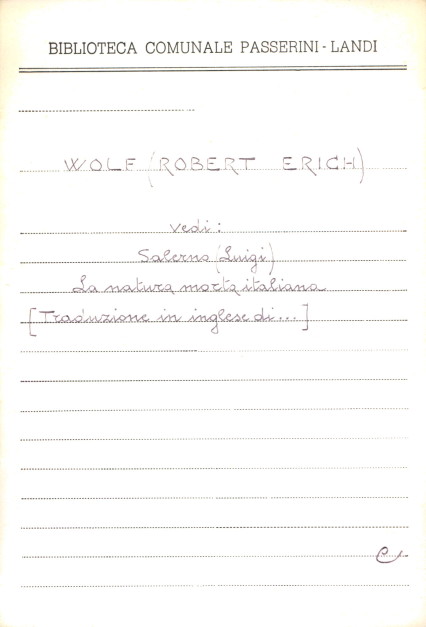 BIBLIOTECA COMUNALE PASSERINI - LANDI
WOLF (ROBERT ERICH)
vedi:
Salerno (Luigi)
La natura morta italiana
[Traduzione in inglese di...]